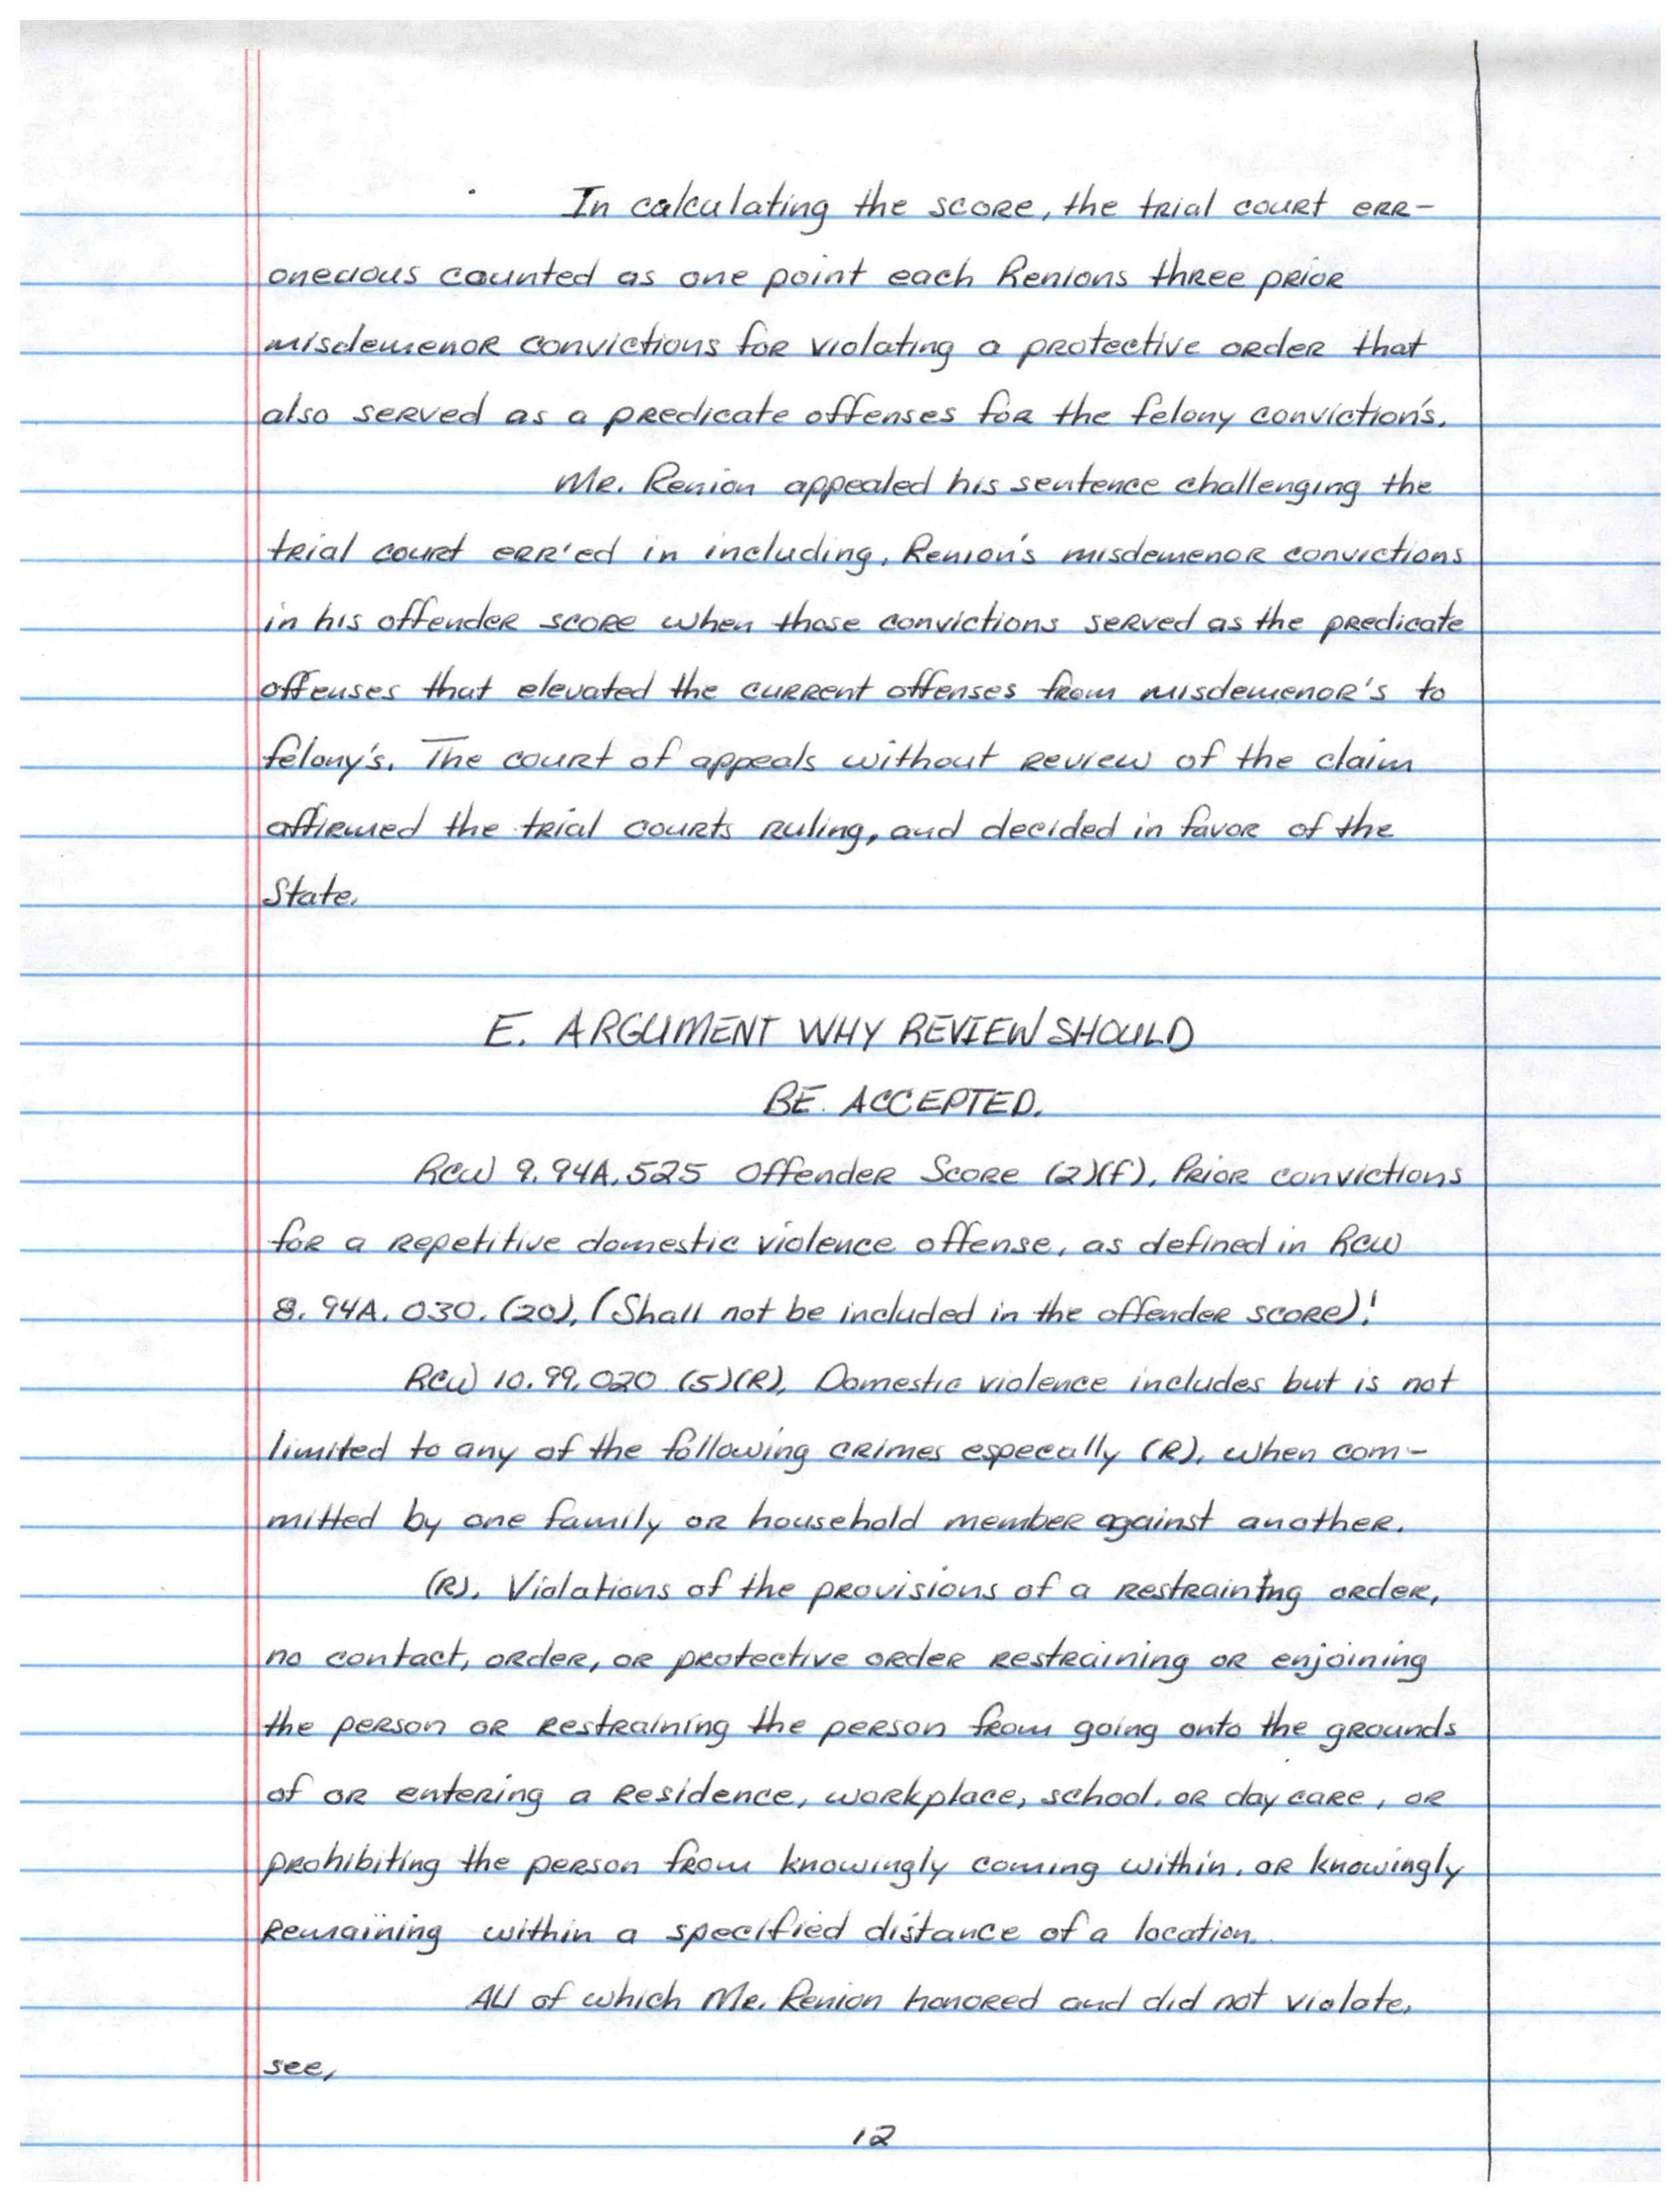 In calculating the score, the trial court err-
oneuous counted as one point each Renions three prior
misdemenor convictions for violating a protective order that
also served as a predicate offenses for the felony conviction's.
Mr. Renion appealed his sentence challenging the
trial court err'ed in including, Renion's misdemenor convictions
in his offender score when those convictions served as the predicate
offenses that elevated the current offenses from misdemenor's to
felony's. The court of appeals without review of the claim
affirmed the trial courts ruling, and decided in favor of the
State.
E. ARGUMENT WHY REVIEW SHOULD
BE ACCEPTED.
RCW 9.94A.525 Offender Score (2)(f), Prior convictions
for a repetitive domestic violence offense, as defined in RCW
8.94A.030.(20), (Shall not be included in the offender score)!
RCW 10.99.020 (5)(R), Domestic violence includes but is not
limited to any of the following crimes especally (R), when com-
mitted by one family or household member against another.
(R). Violations of the provisions of a restraining order,
no contact, order, or protective order restraining or enjoining
the person or restraining the person from going onto the grounds
of or entering a residence, workplace, school, or day care, or
prohibiting the person from knowingly coming within, or knowingly
remaining within a specified distance of a location.
All of which Mr. Renion honored and did not violate.
see,
12